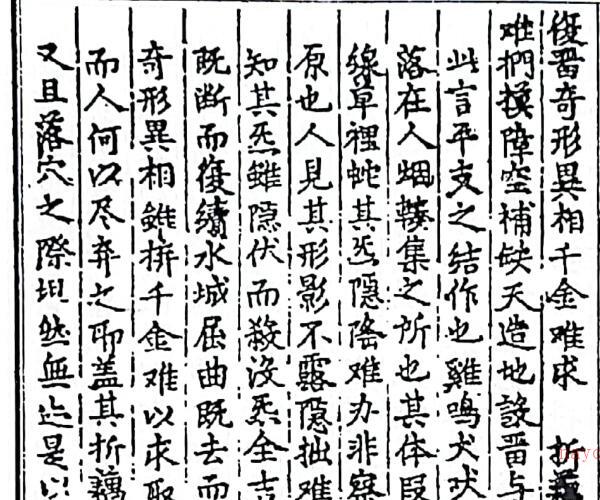 復奇形異相千金难求 折藕
难捫摸障空補缺天造地設与
此言平支之结作也雞鳴犬吠
落在人烟輳集之所也其体段
線草裡蛇其炁隠难办非察
原也人見其形影不露隠拙难
知其炁雖隐伏而殺没炁全吉
既断而復續水城屈曲既去而
奇形異相雖拚千金难以求取
而人何以尽弃之耶盖其折藕
又且落穴之際坦然無迹是以